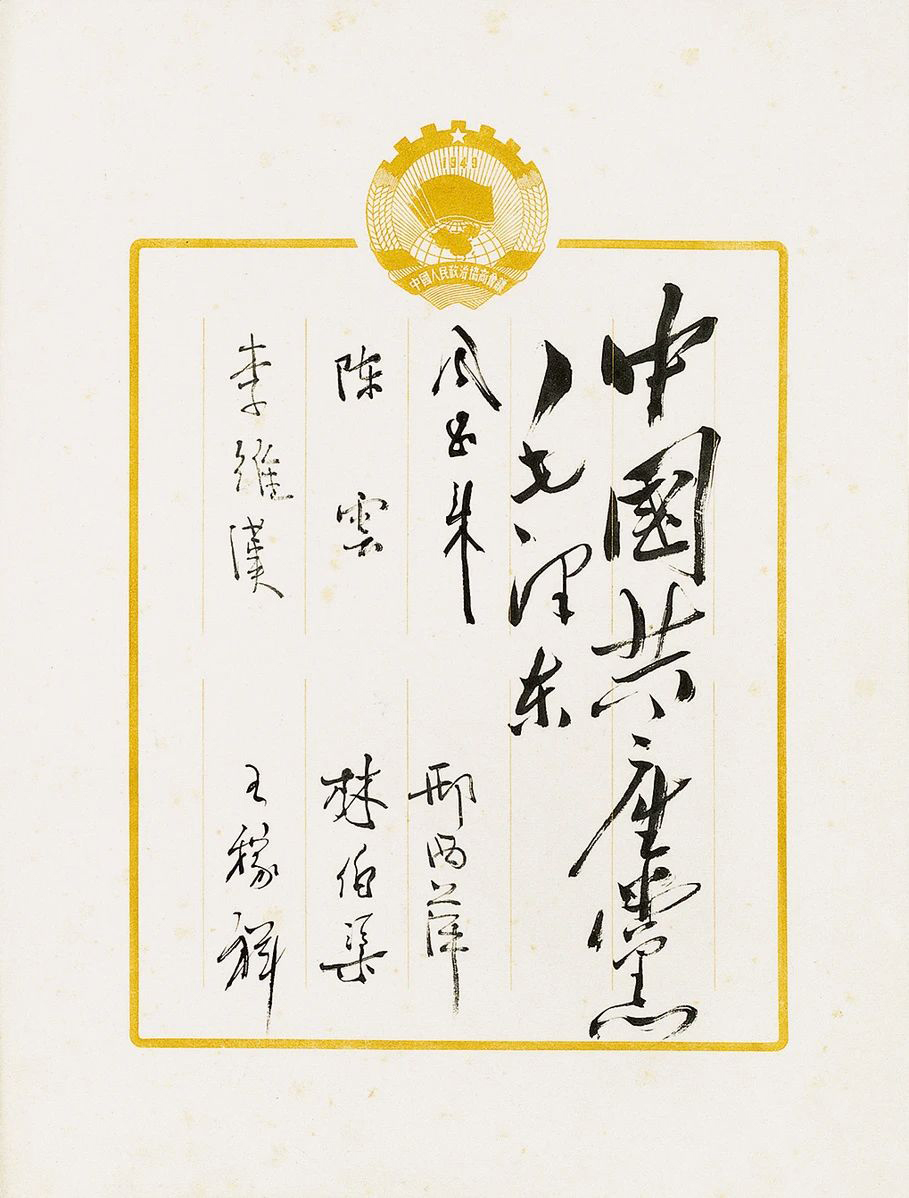 1949
中國人民政治協商會議
中國共产黨
毛泽东
周恩来
邢西萍
陈雲
林伯渠
李維漢
王稼祥